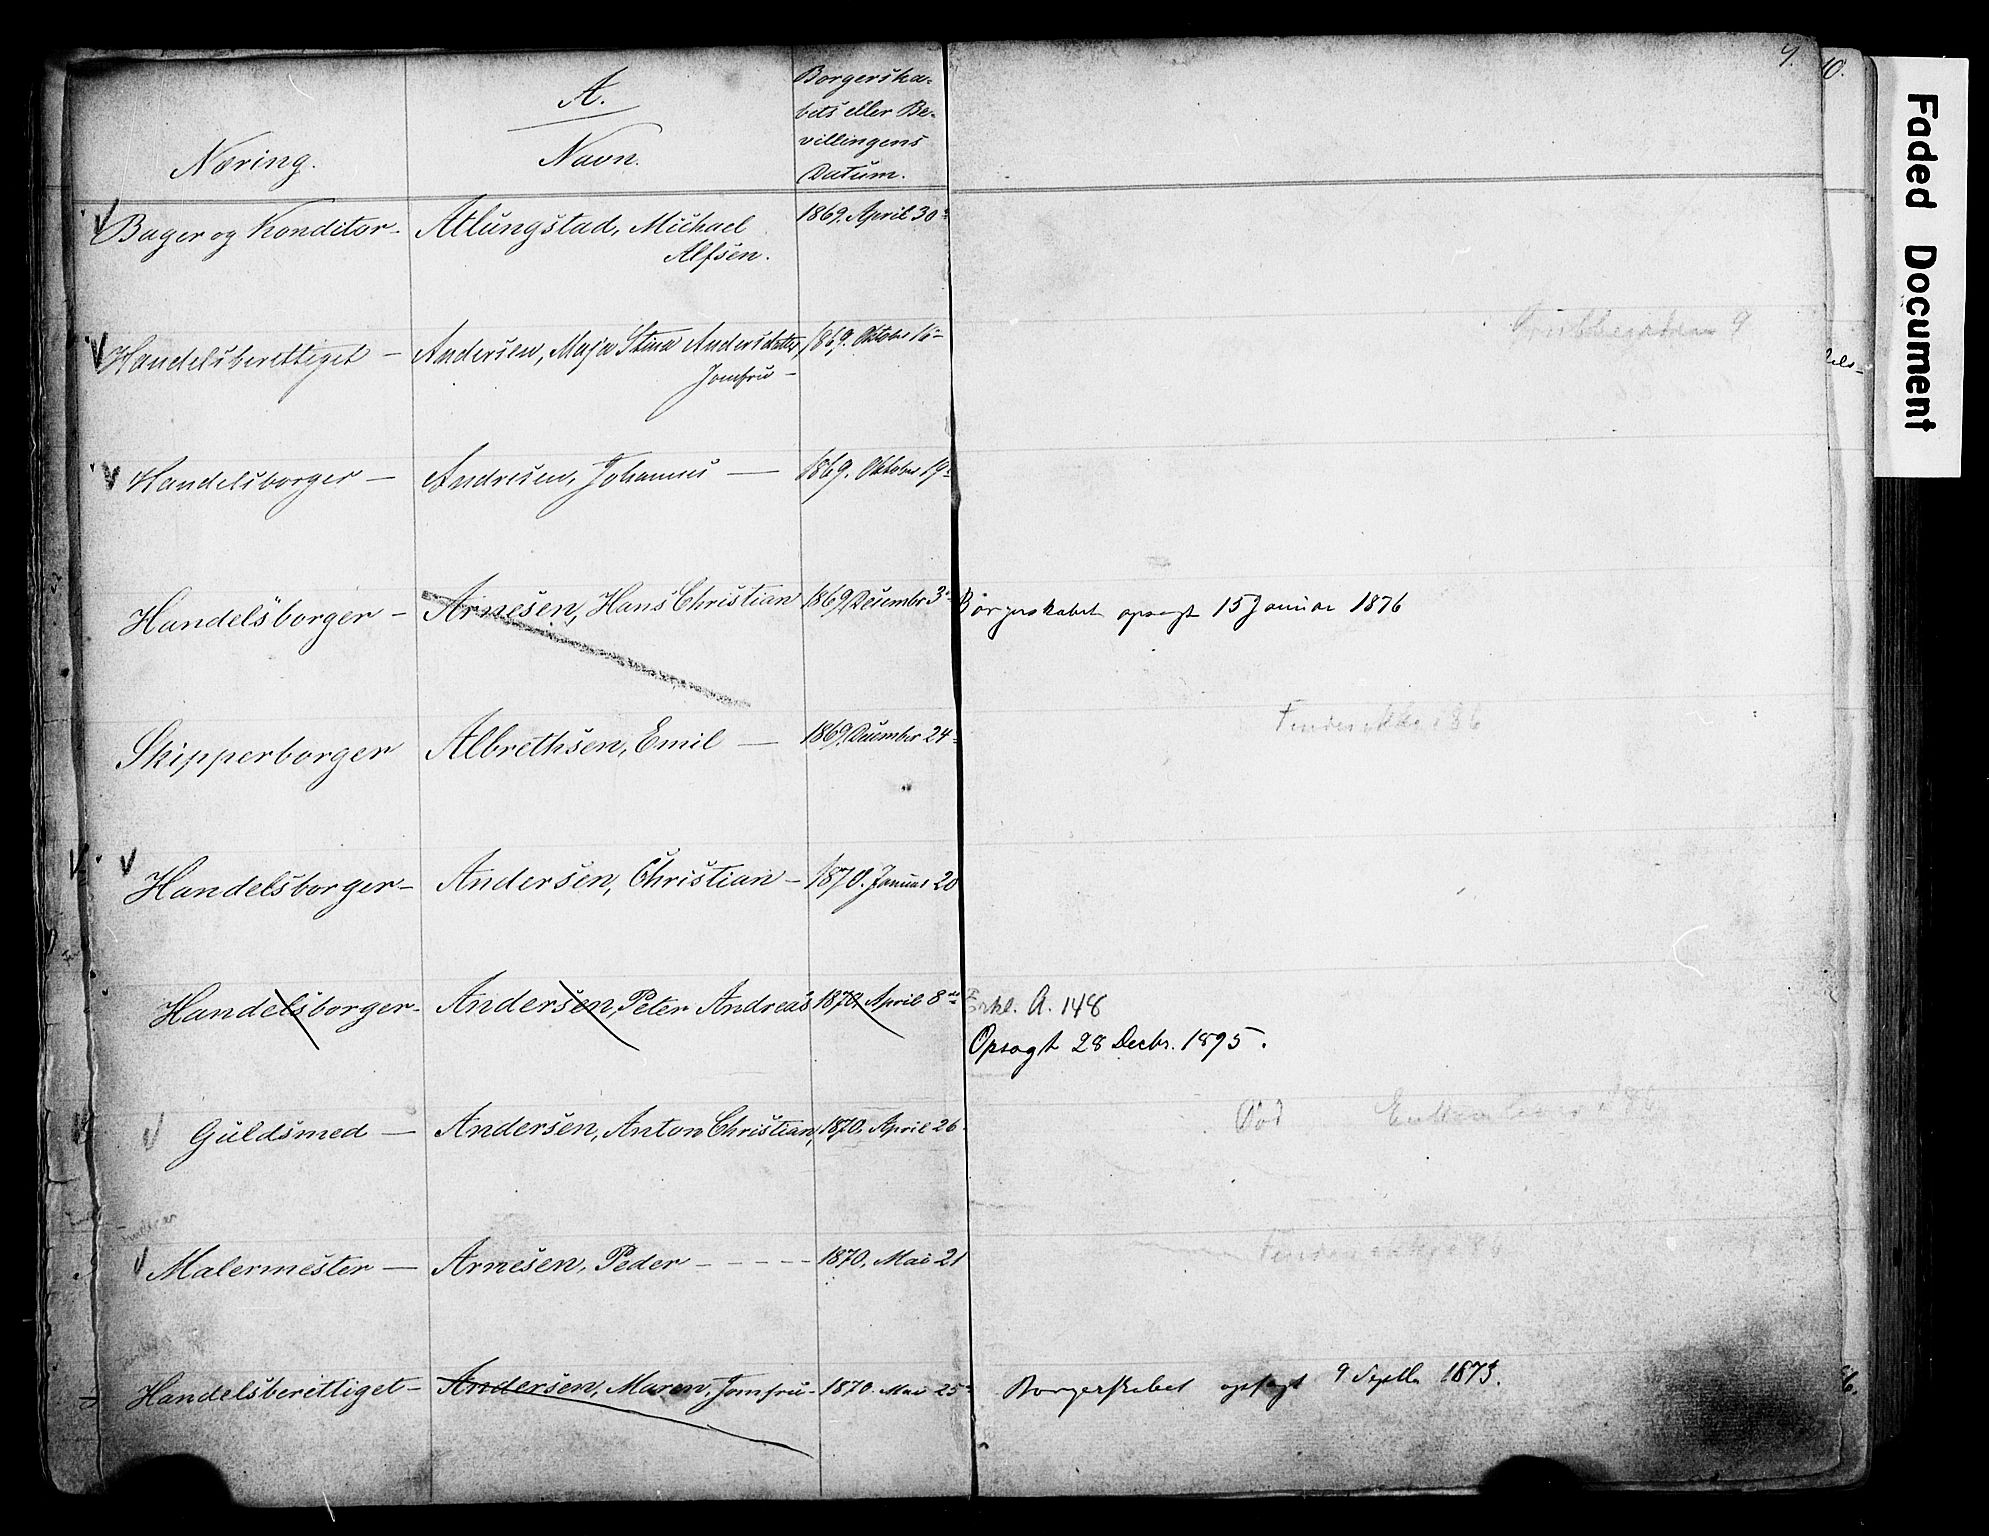 9.
10.
Faded Document
A.
Næring.
Navn.
Borgerska-
bets eller Be-
villingens
Datum.
Bager og Konditor - Atlungstad, Michael 1869. April 30
Alfsen.
Handelsberettiget - Andersen, Maja Stina Andersdatter, 1869. Oktober 16
Jomfru -
Handelsborger - Andresen, Johannes - 1869. Oktober 19
Handelsborger - Arnesen, Hans Christian 1869. Decembr 3 Borgerskabet opsagt 15 Januar 1876
Skipperborger Albrethsen, Emil - 1869. December 24 Findes ikke 86
Handelsborger - Andersen, Christian - 1870. Januar 20
Handelsborger - Andersen, Peter Andreas 1870. April 8de Erkl. A. 148
Opsagt 28 Decbr. 1895.
Guldsmed - Andersen, Anton Christian, 1870. April 26 Død
Malermester - Arnesen, Peder - - - - 1870. Mai 21 Findes ikke 86
Handelsberettiget - Andersen, Maren, Jomfru - 1870. Mai 25 Borgerskabet opsagt 9 Septb. 1873.